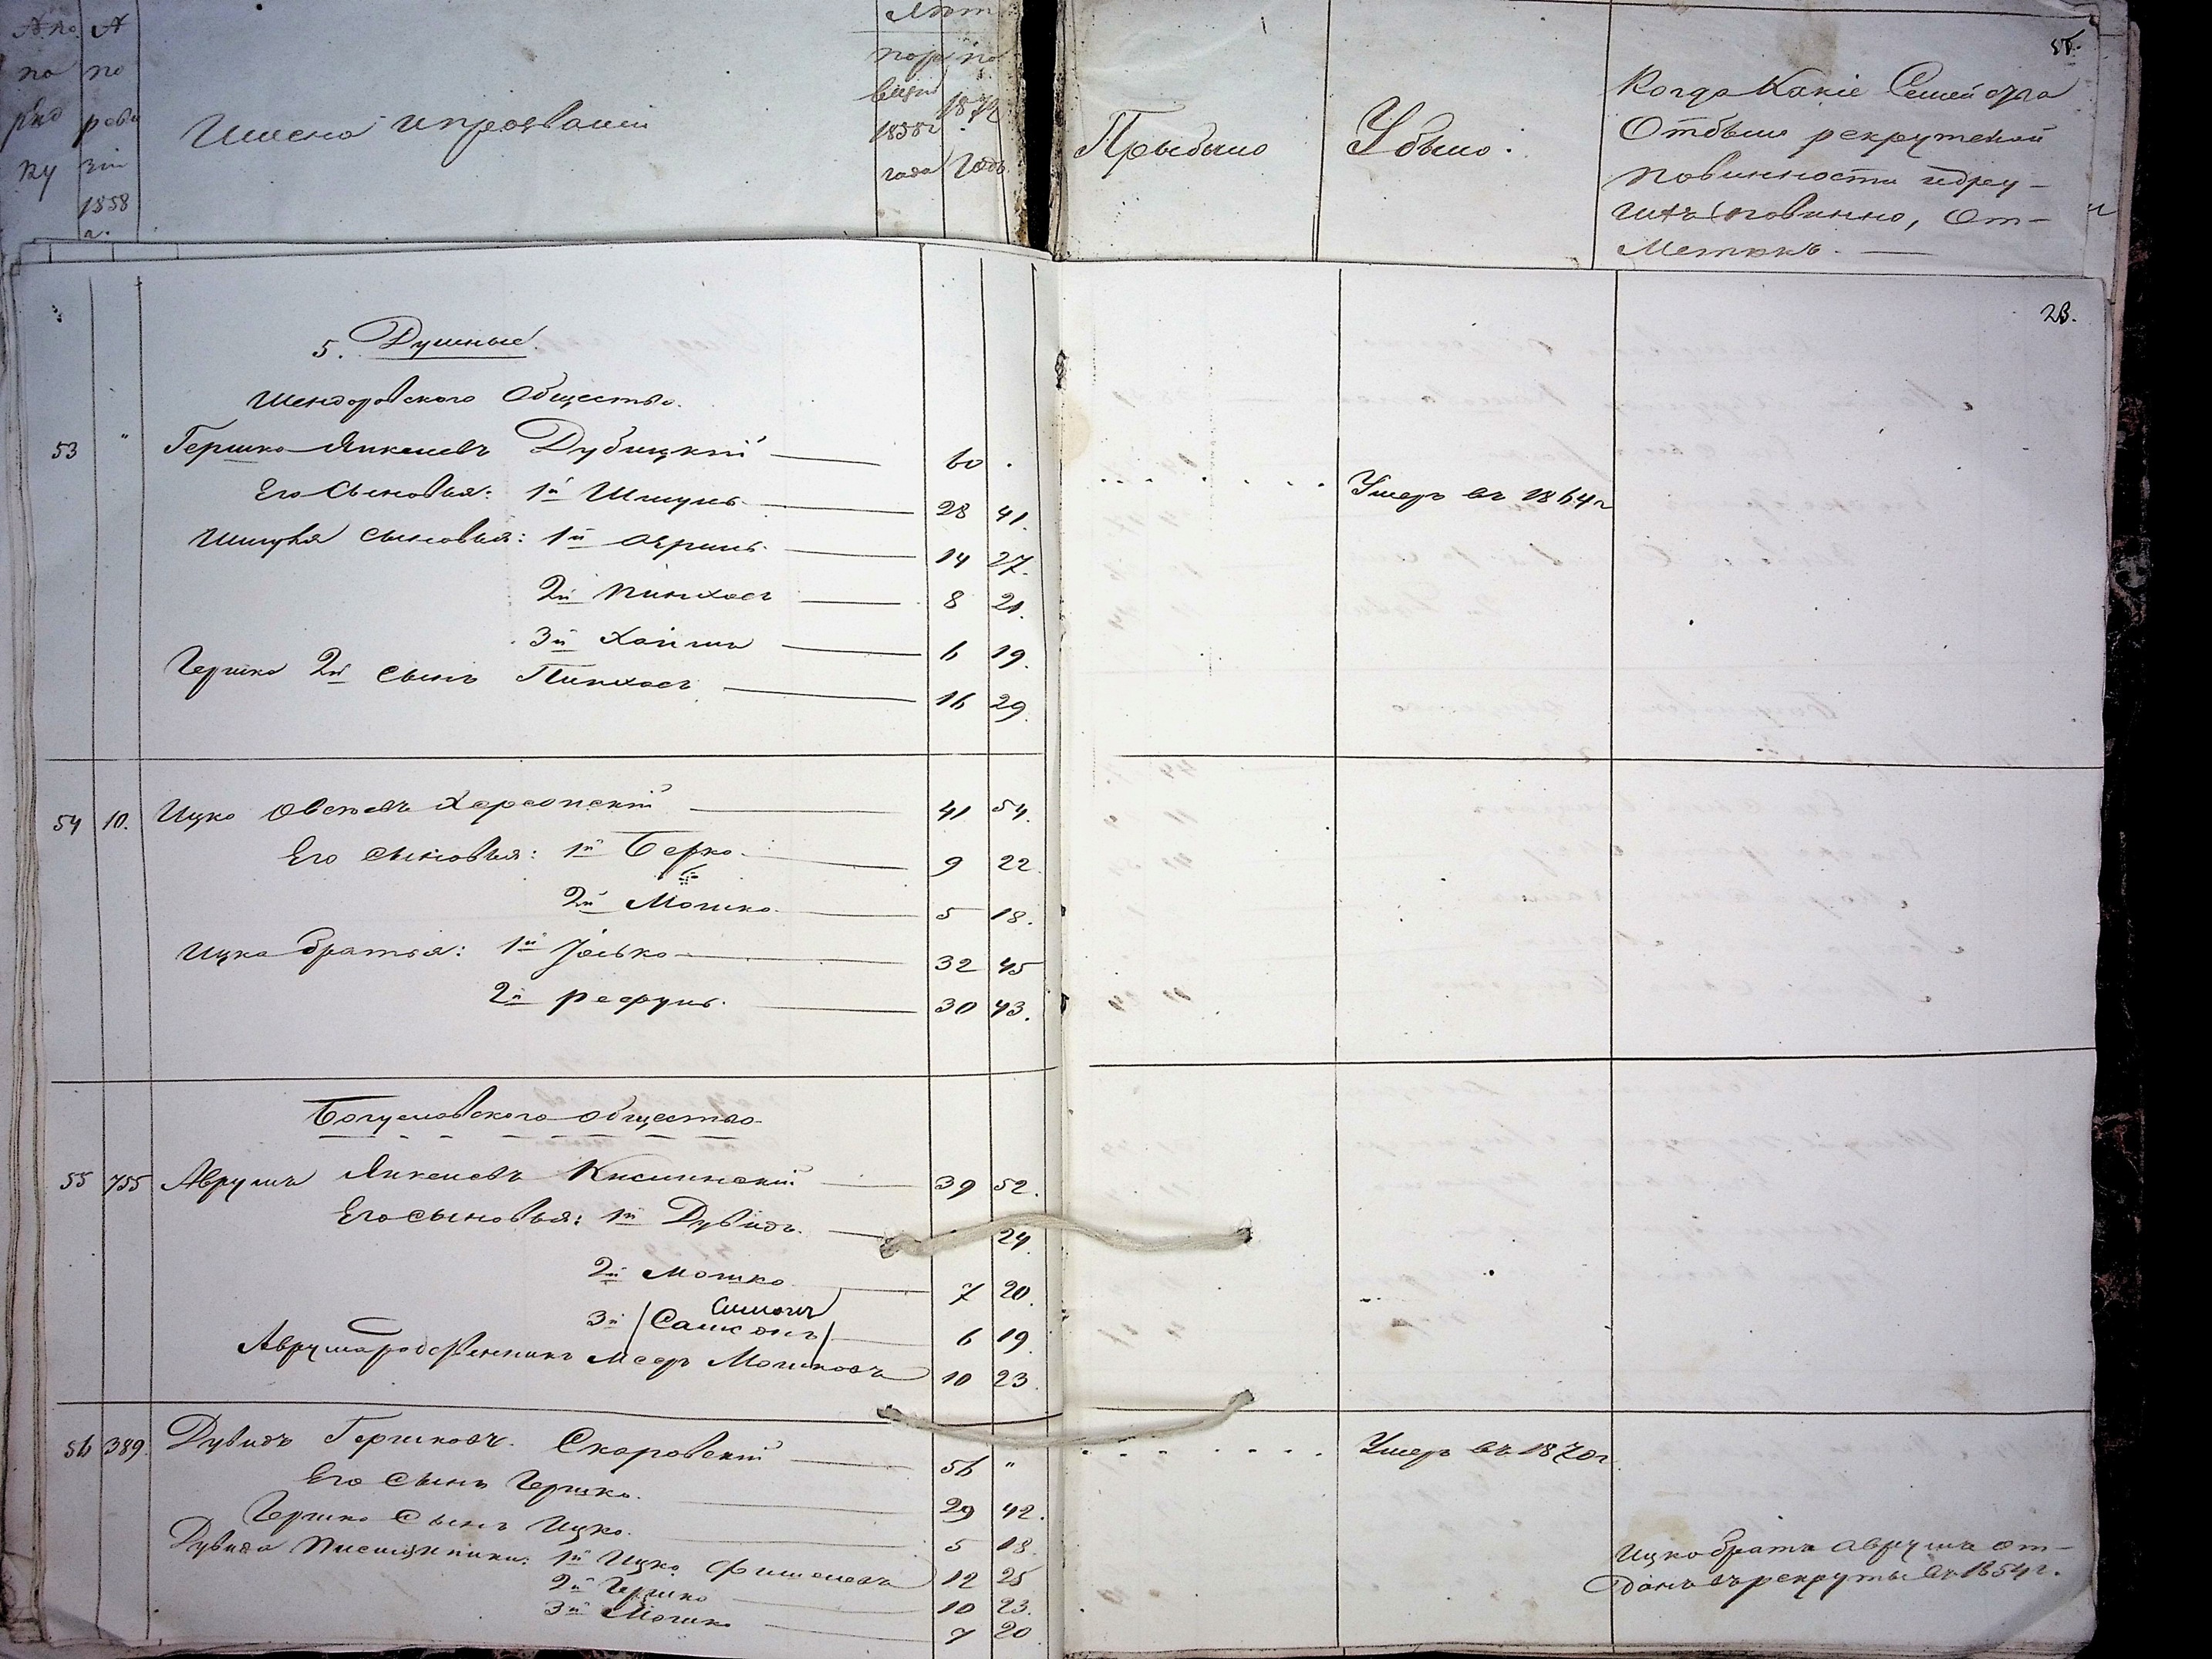 № по
по
ряд
ку
№
по
реви
зіи
1858
г.
Имена и прозванiи
Лѣт
по ре
визіи
1858
года
по
1872
Годъ
Прыбыло
Убыло.
Когда Какіе Семейства
Отбыли рекрутской
повинности
повинно, От-
метокъ.
23.
5. Душные.
Шендоровского Общества.
53 " Гершко Янкелевъ Дубицкій 60 .
Умеръ въ 1864 г
Его Сыновья: 1й Шмуль 28 41.
Шмуля сыновья: 1й Сруль 14 27.
2й Пинхасъ 8 21.
3й Хаимъ 6 19.
Гершка 2й Сынъ Пинхасъ 16 29.
54 10. Ицко Овсеевъ Херсонскій 41 54.
Его сыновья: 1й Берко 9 22
2й Мошко 5 18.
Ицка братья: 1й Іосько 32 45
2й рефуль 30 43.
Богуславского общества
55 755 Аврумъ Янкелевъ Кислинскій 39 52.
Его сыновья: 1й Дувидъ 24.
2й Мошко 7 20.
Симонъ
3й (Самсонъ) 6 19.
Аврума родственникъ Меер Мошковъ 10 23.
56 389. Дувидъ Гершковъ Скаровскій 56 "
Умеръ въ 1870 г
Его Сынъ Гершко 29 42.
Гершка Сынъ Ицко. 5 18.
Дувида племянники: 1й Ицко Фишелевъ 12 25
2й Гершко 10 23.
3й Мошко 7 20
Ицка братъ Аврумъ от-
данъ въ рекруты въ 1854 г.